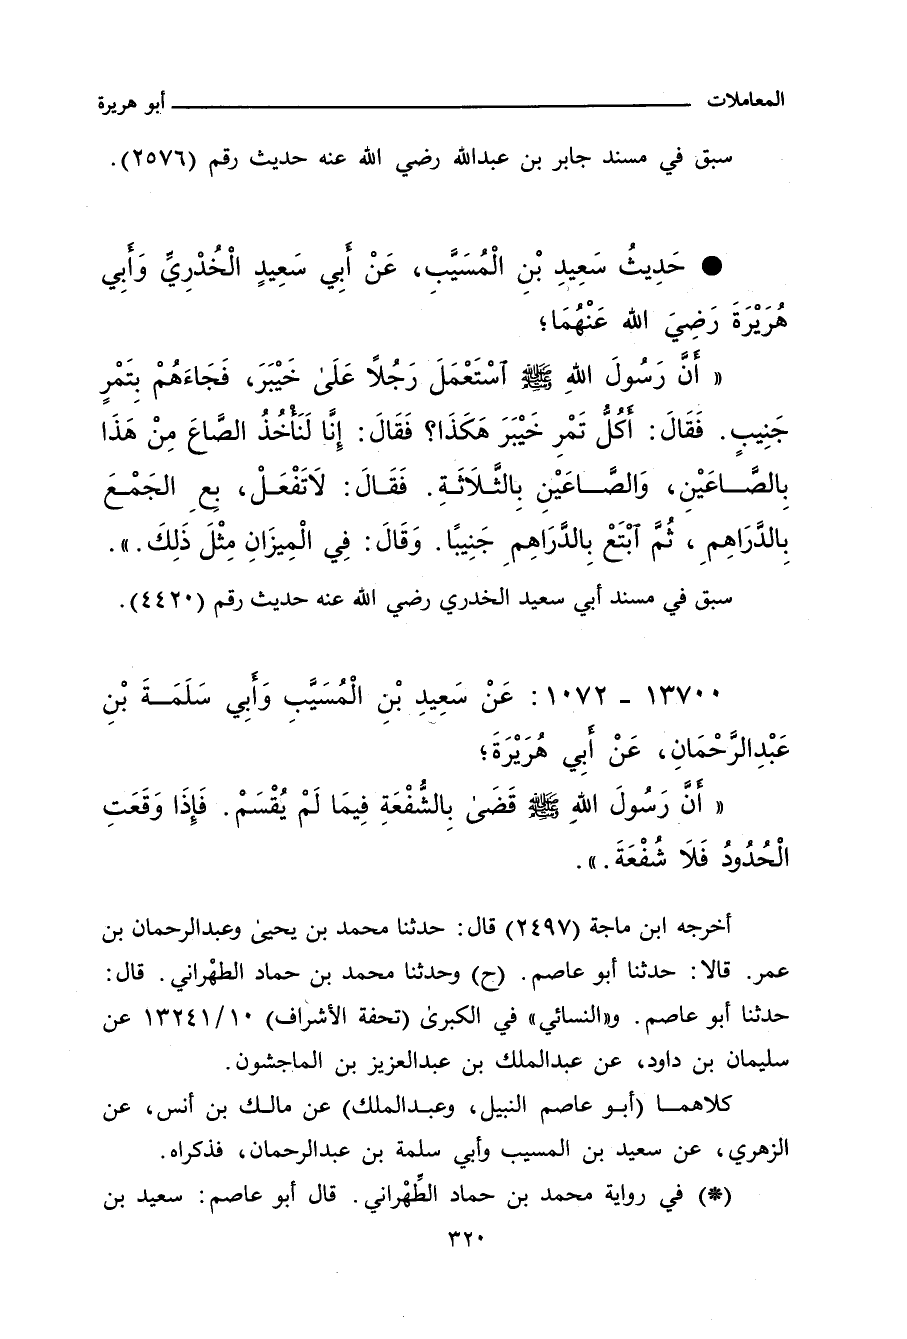 المعاملات ــــــــــــــــــــــــــــــــــــــــــ أبو هريرة
سبق في مسند جابر بن عبدالله رضي الله عنه حديث رقم (٢٥٧٦).
● حَدِيثُ سَعِيدِ بْنِ الْمُسَيَّبِ، عَنْ أَبِي سَعِيدٍ الْخُدْرِيِّ وَأَبِي
هُرَيْرَةَ رَضِيَ الله عَنْهُمَا؛
« أَنَّ رَسُولَ اللهِ ﷺ ٱسْتَعْمَلَ رَجُلًا عَلَىٰ خَيْبَرَ، فَجَاءَهُمْ بِتَمْرٍ
جَنِيبٍ. فَقَالَ: أَكُلُّ تَمْرِ خَيْبَرَ هَكَذَا؟ فَقَالَ: إِنَّا لَنَأْخُذُ الصَّاعَ مِنْ هَذَا
بِالصَّاعَيْنِ، وَالصَّاعَيْنِ بِالثَّلَاثَةِ. فَقَالَ: لَاتَفْعَلْ، بِعِ الجَمْعَ
بِالدَّرَاهِمِ، ثُمَّ ٱبْتَعْ بِالدَّرَاهِمِ جَنِيبًا. وَقَالَ: فِي الْمِيزَانِ مِثْلَ ذَلِكَ.».
سبق في مسند أبي سعيد الخدري رضي الله عنه حديث رقم (٤٤٢٠).
١٣٧٠٠ - ١٠٧٢: عَنْ سَعِيدِ بْنِ الْمُسَيَّبِ وَأَبِي سَلَمَةَ بْنِ
عَبْدِالرَّحْمَانِ، عَنْ أَبِي هُرَيْرَةَ؛
« أَنَّ رَسُولَ اللهِ ﷺ قَضَىٰ بِالشُّفْعَةِ فِيمَا لَمْ يُقْسَمْ. فَإِذَا وَقَعَتِ
الْحُدُودُ فَلَا شُفْعَةَ.».
أخرجه ابن ماجة (٢٤٩٧) قال: حدثنا محمد بن يحيىٰ وعبدالرحمان بن
عمر. قالا: حدثنا أبو عاصم. (ح) وحدثنا محمد بن حماد الطهْراني. قال:
حدثنا أبو عاصم. و«النسائي» في الكبرىٰ (تحفة الأشراف) ١٣٢٤١/١٠ عن
سليمان بن داود، عن عبدالملك بن عبدالعزيز بن الماجشون.
كلاهما (أبو عاصم النبيل، وعبدالملك) عن مالك بن أنس، عن
الزهري، عن سعيد بن المسيب وأبي سلمة بن عبدالرحمان، فذكراه.
(*) في رواية محمد بن حماد الطِّهْراني. قال أبو عاصم: سعيد بن
٣٢٠